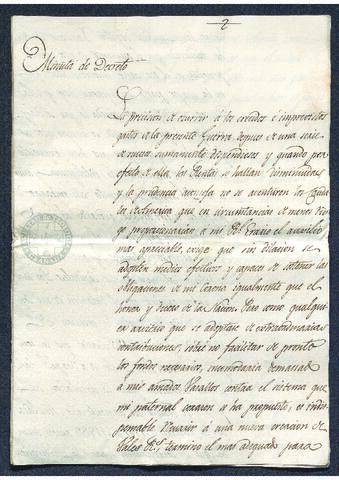 2
Minuta de Decreto
La precision de ocurrir á los crecidos é imprevistos
gastos de la presente Guerra, despues de una serie
de meses sumamente dispendiosos y quando por
efecto de ella, las Rentas se hallan disminuidas
y la prudencia aconseja no se aventuren los
de America que en circunstancias de menos
go proporcionarán á mi Rl. Erario el auxilio
mas apreciable, exige que sin dilacion se
adopten medios efectivos y capaces de sostener las
obligaciones de mi Corona igualmente que el
honor y decoro de la Nacion. Pero como qualqui-
er auxilio que se adoptase de extraordinarias
contribuciones, sobre no facilitar de pronto
los fondos necesarios, incomodaria demasiado
á mis amados Vasallos contra el sistema que
mi paternal corazon se ha propuesto, es indis-
pensable recurrir á una nueva creacion de
Vales Rs. termino el mas adequado para